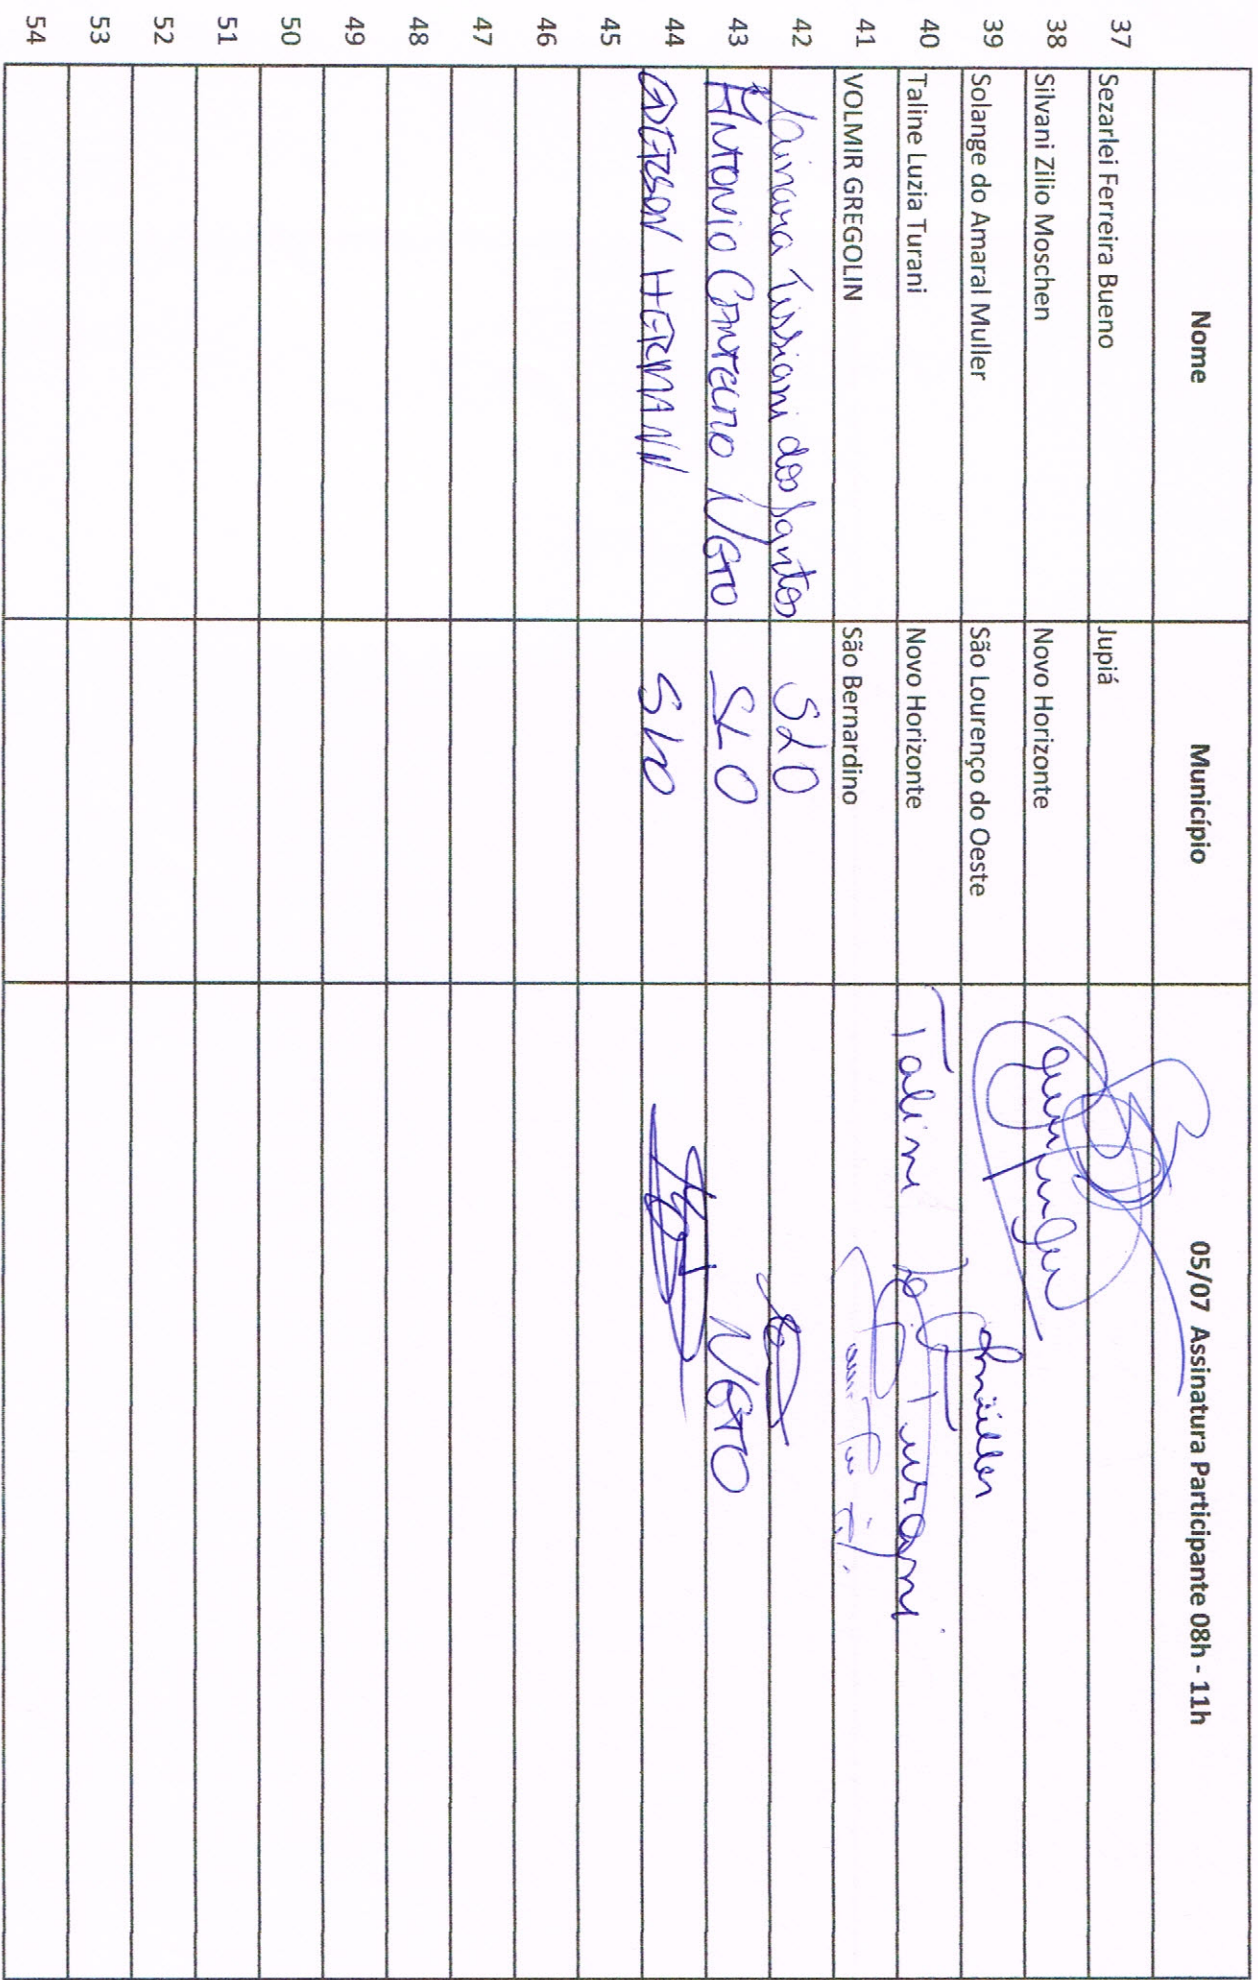 Nome Município 05/07 Assinatura Participante 08h - 11h
37 Sezarlei Ferreira Bueno Jupiá
38 Silvani Zilio Moschen Novo Horizonte
39 Solange do Amaral Muller São Lourenço do Oeste
40 Taline Luzia Turani Novo Horizonte Taline Turani
41 VOLMIR GREGOLIN São Bernardino
42 Tissiani dos Santos SLO
43 ANTONIO NETO SLO NETO
44 EDERSON HERMANN SLO
45
46
47
48
49
50
51
52
53
54